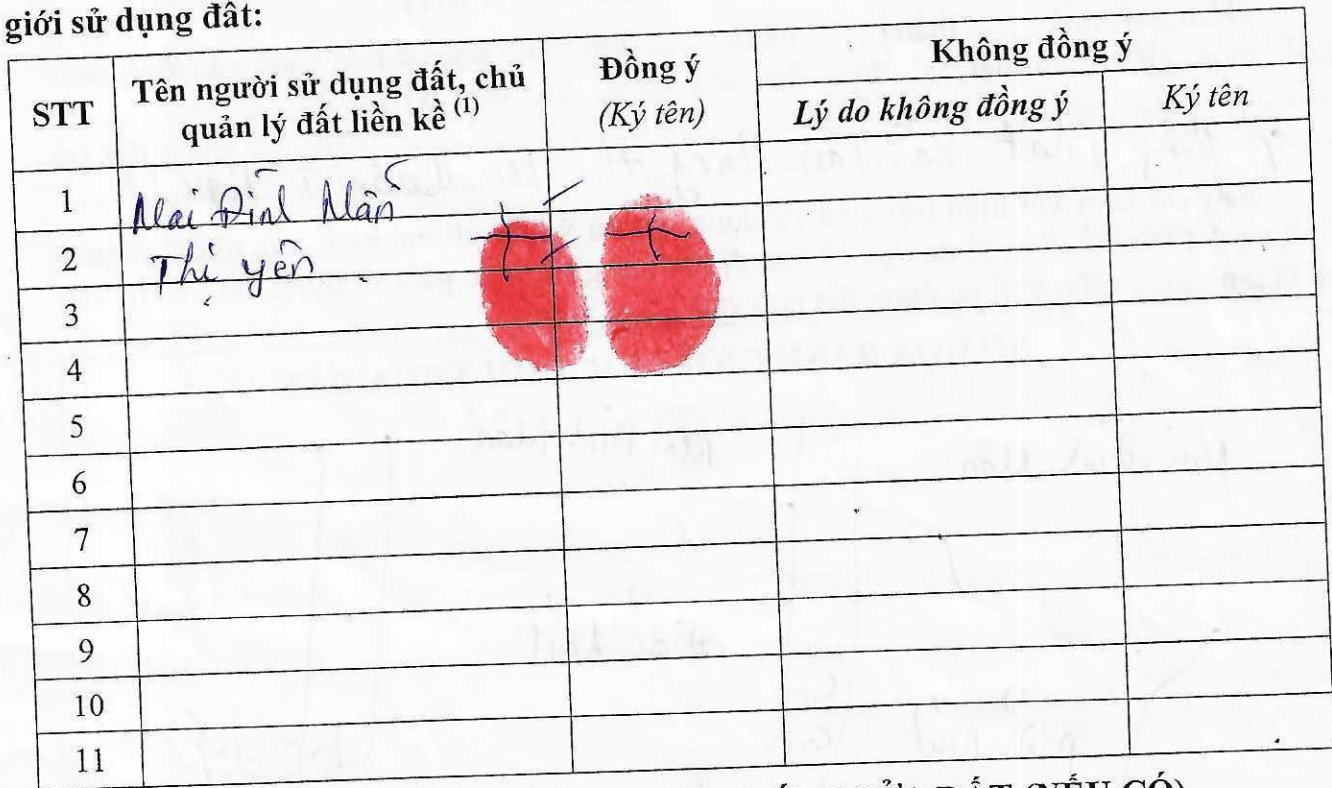 giới sử dụng đất:
STT
Tên người sử dụng đất, chủ
quản lý đất liền kề (1)
Đồng ý
(Ký tên)
Không đồng ý
Lý do không đồng ý
Ký tên
1
Mai Đình Mẫn
2
Thị yến
3
4
5
6
7
8
9
10
11
ĐẤT (NẾU CÓ)